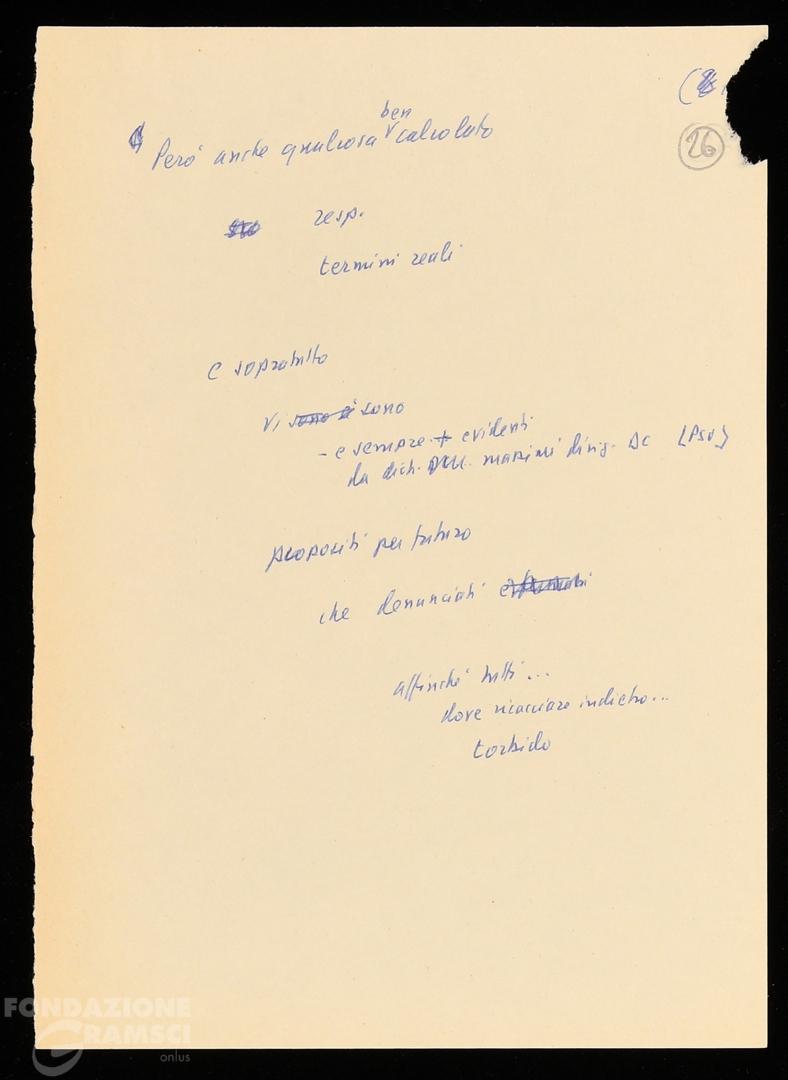 Però anche qualcosa ben calcolato
26
resp.
termini reali
e sopratutto
vi sono
- e sempre + evidenti
da dich. massimi dirig. DC [PSU]
propositi per futuro
che denunciati
affinché tutti...
dove ricacciare indietro...
torbido
FONDAZIONE
GRAMSCI
onlus